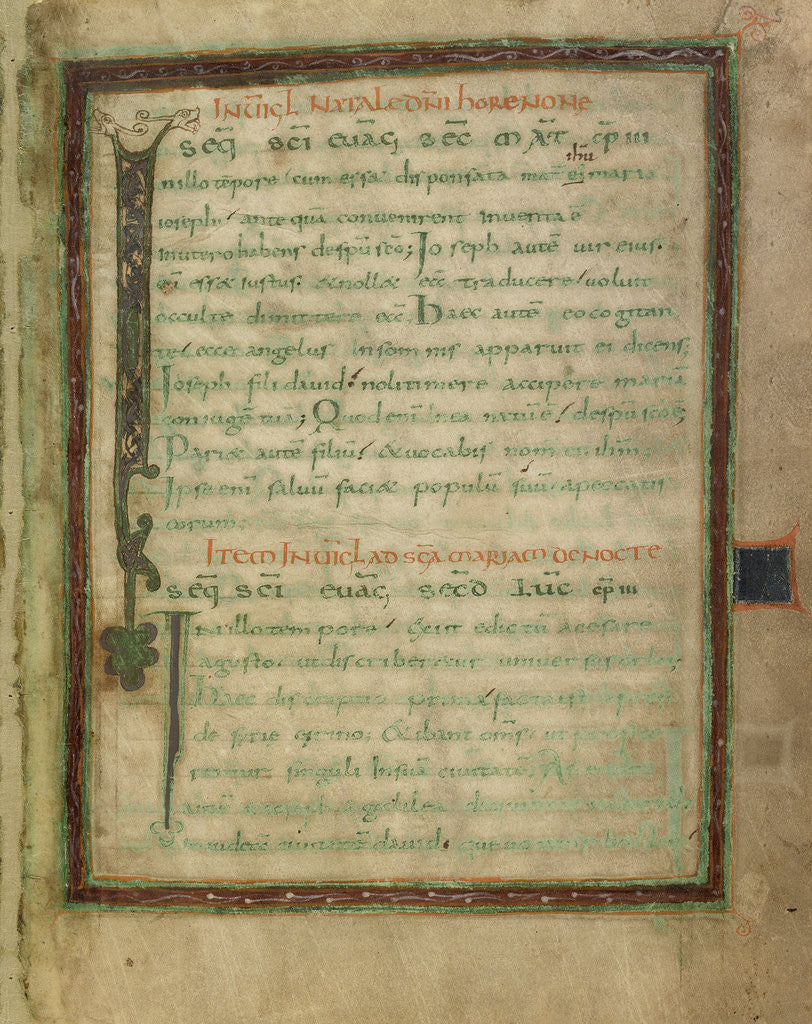 IN UIGL NATALE DN̅I hORE NONE
SEQ̅ SC̅I EUAG̅ SEC̅ MAT̅ CP̅ III
ih̅u
nillo te̅pore cum esset disponsata mat̅ ei maria
ioseph ante qua̅ convenirent inventa e̅
inutero habens de sp̅u sc̅o; Joseph aute̅ uir eius.
essᷓ iustus. & nollet ea̅ traducere uoluit
occulte dimittere ea̅ Haec aute̅ eo cogitan
te ecce angelus insomnis apparuit ei dicens;
Joseph fili david. noli timere accipere maria̅
coniuge̅ tua̅; Quod eni̅ in ea natu̅ e̅ de sp̅u sc̅o e̅;
Pariet aute̅ filiu̅ & vocabis nomen ih̅m;
Ipse eni̅ salvu̅ faciet populu̅ suu̅ a peccatis
eorum;
ITEM IN UIGL AD SC̅A MARIAM DE NOCTE
SEQ̅ SC̅I EUAG̅ SECD̅ LUC̅ CP̅ III
In illo tempore Exiit edictu̅ a cesare
agusto ut discriberetur universus orbis;
Haec discriptio prima facta est
de syrie cirino; & ibant om̅s ut
singuli in sua̅ ciuitate̅; Ascendit
aute̅ & ioseph a galilea
ciuitate̅ david.